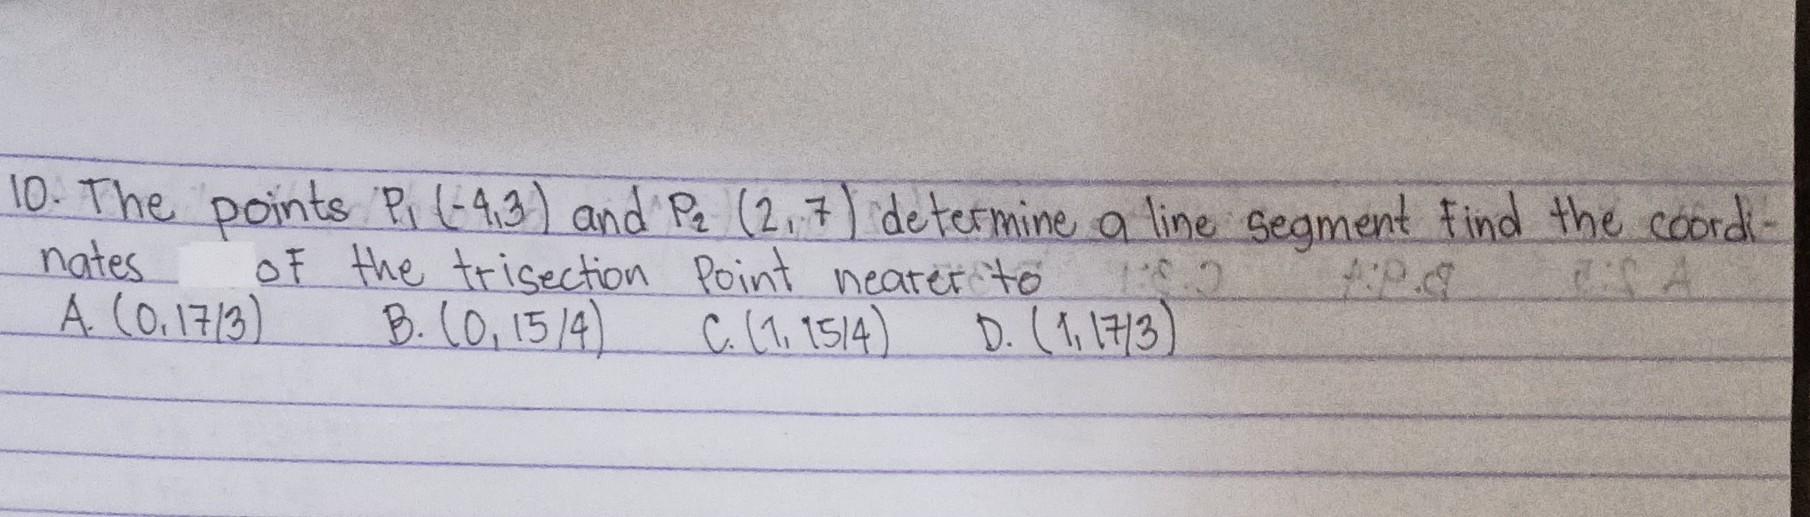 10. The points P₁ (-4,3) and P₂ (2,7) determine a line segment Find the coordi-
nates of the trisection Point nearer to
A. (0,17/3) B. (0, 15/4) C. (1, 15/4) D. (1, 17/3)